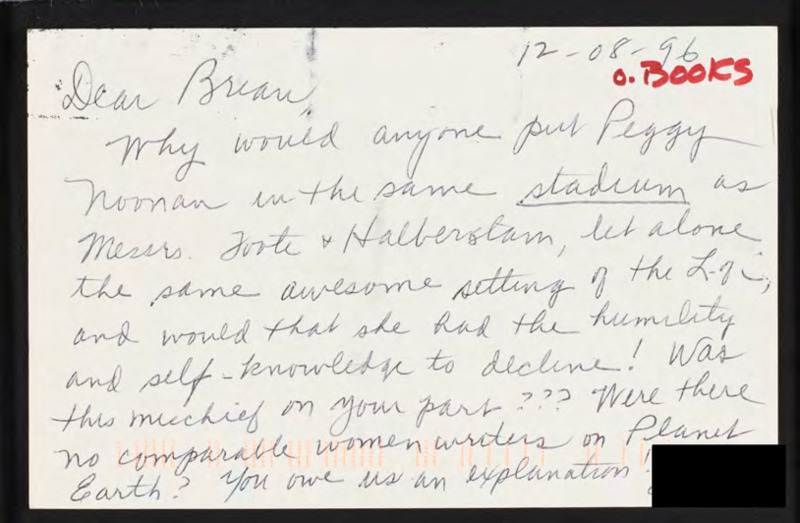 12-08-96
o. BOOKS
Dear Brian,
Why would anyone put Peggy
Noonan in the same stadium as
Messrs. Foote & Halberstam, let alone
the same awesome setting of the L-of-C,
and would that she had the humility
and self-knowledge to decline! Was
this mischief on your part??? Were there
no comparable women writers on Planet
Earth? You owe us an explanation!